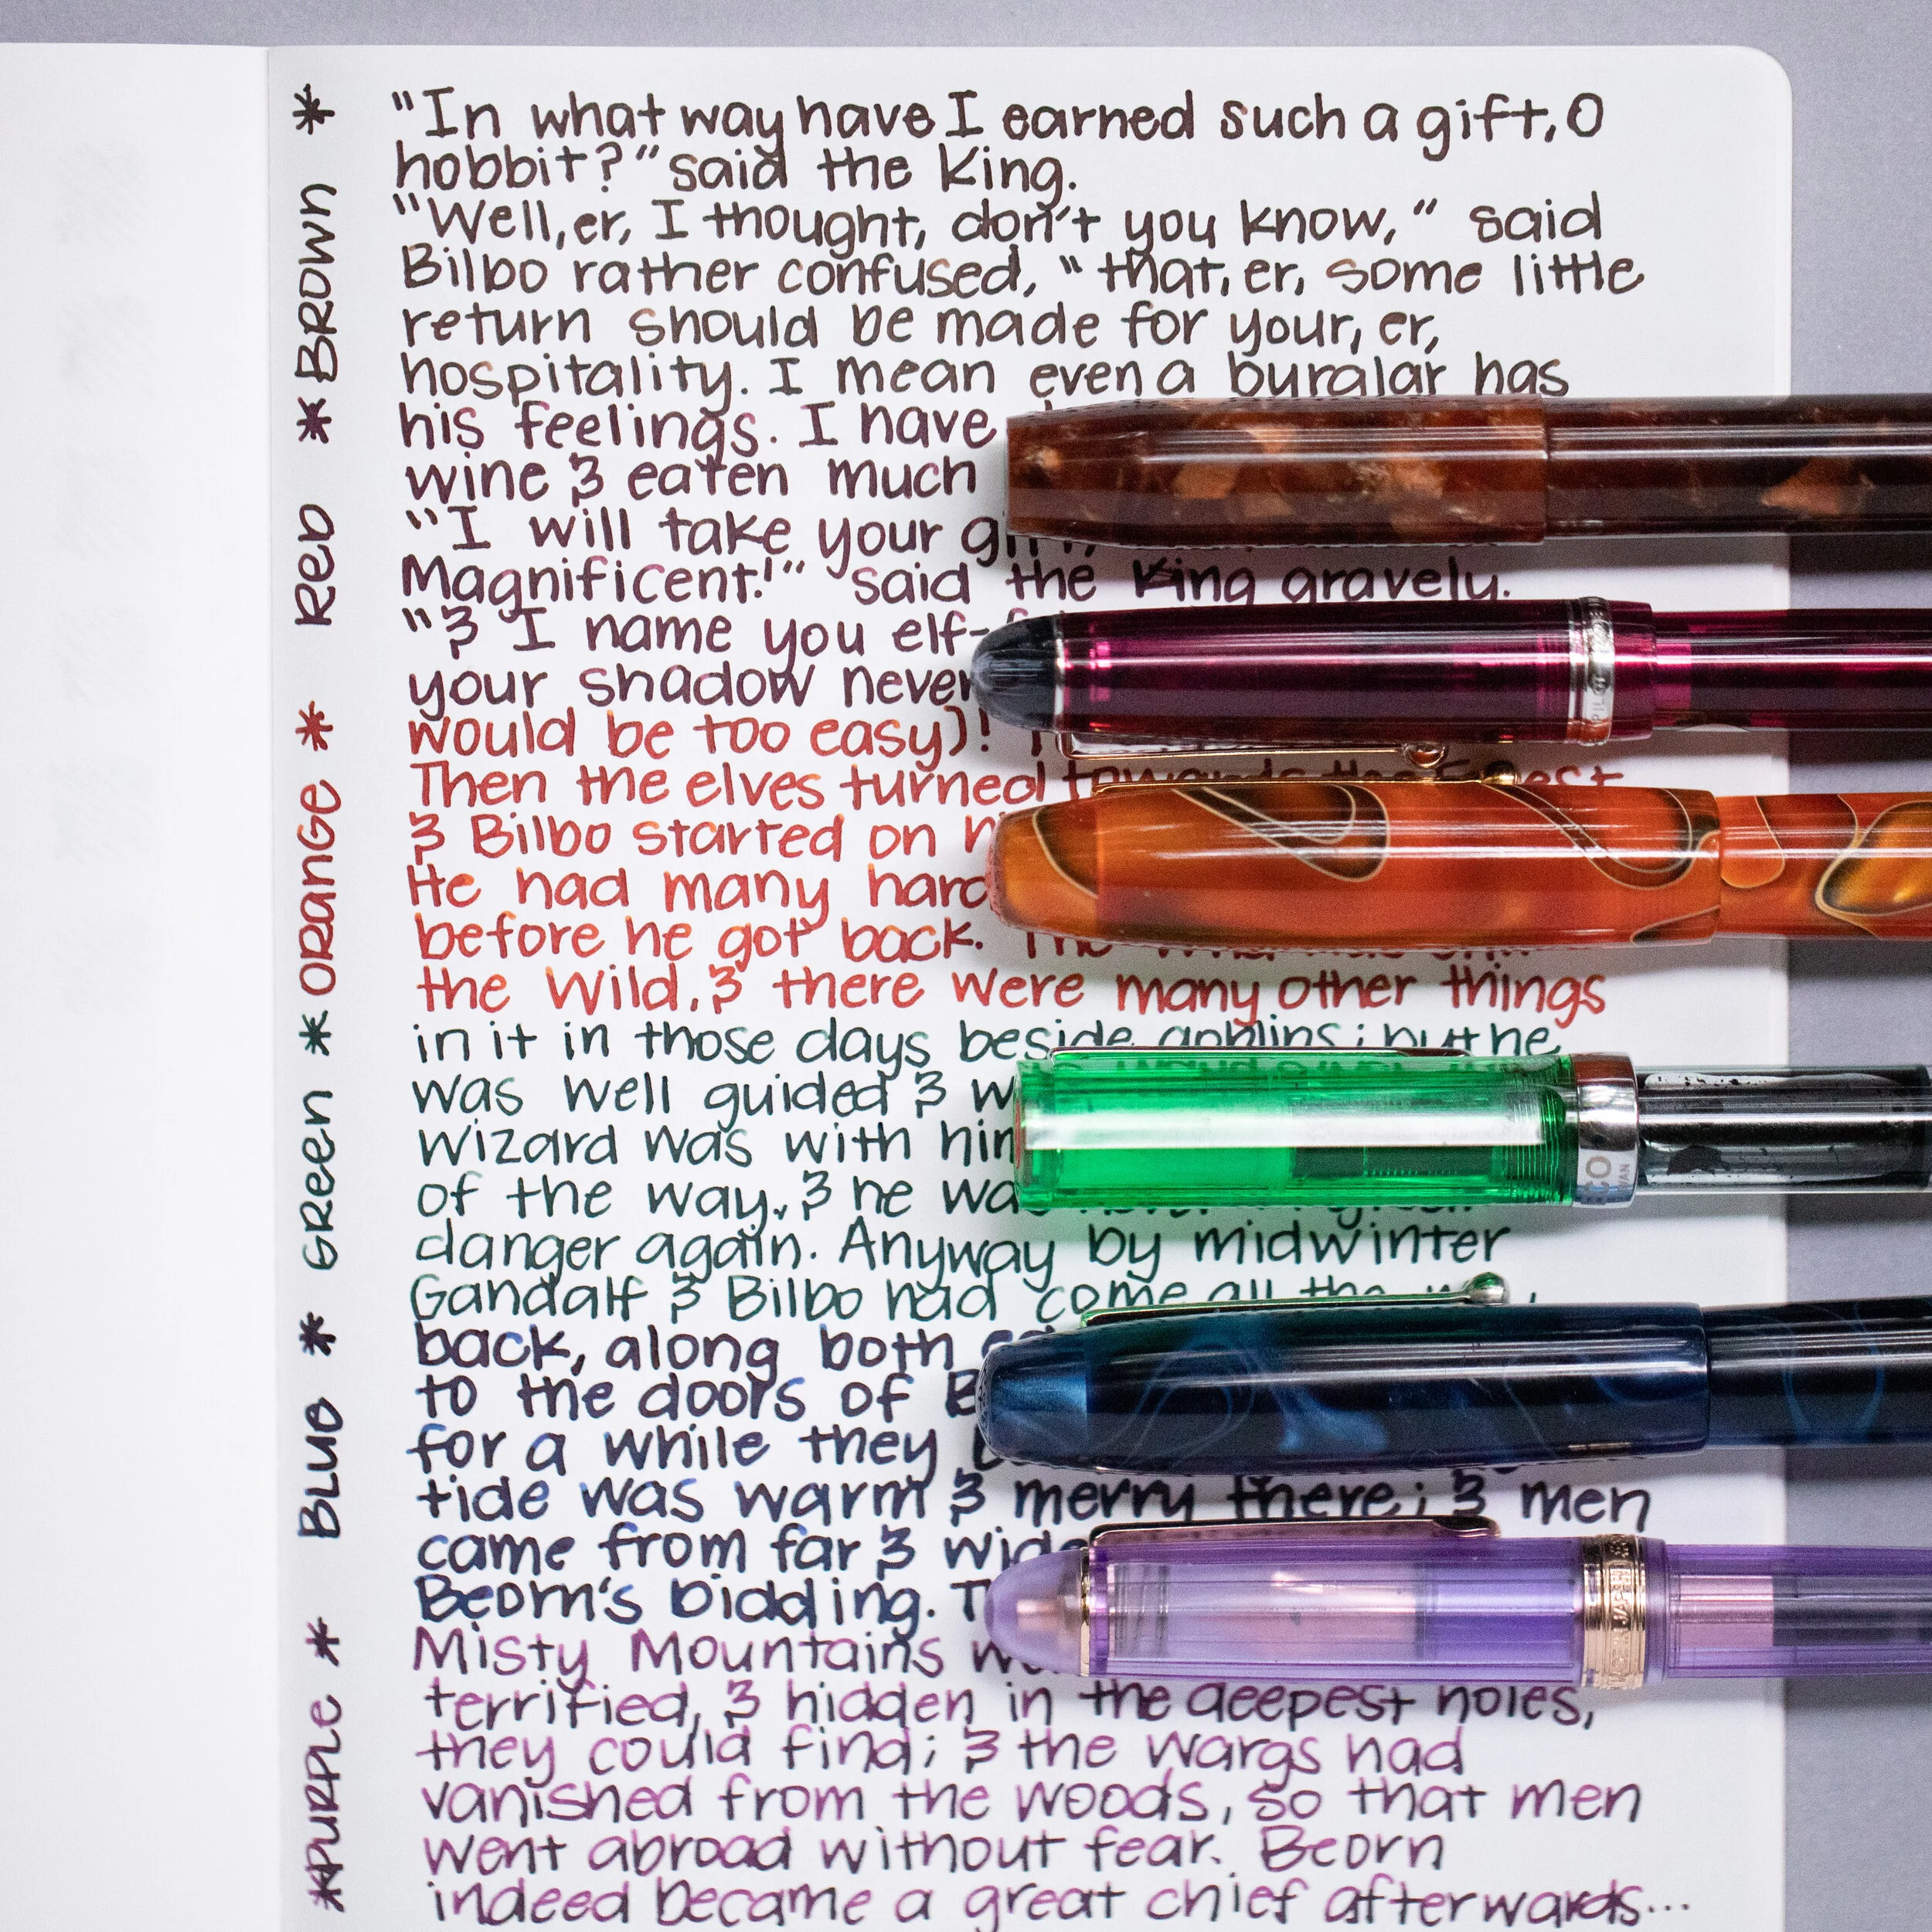 * Brown * Red * Orange * Green * Blue * Purple *
"In what way have I earned such a gift, O
hobbit?" said the King.
"Well, er, I thought, don't you know," said
Bilbo rather confused, "that, er, some little
return should be made for your, er,
hospitality. I mean even a burglar has
his feelings. I have
wine & eaten much
"I will take your
Magnificent!" said the King gravely.
"& I name you elf-
your shadow never
would be too easy)!
Then the elves turned towards the Forest
& Bilbo started on
He had many hard
before he got back. The
the Wild, & there were many other things
in it in those days beside goblins; but he
was well guided & 
wizard was with him
of the way, & he was never
danger again. Anyway by midwinter
Gandalf & Bilbo had come all the way
back, along both
to the doors of
for a while they
tide was warm & merry there; & men
came from far & wide
Beorn's bidding.
Misty Mountains
terrified, & hidden in the deepest holes,
they could find; & the Wargs had
vanished from the woods, so that men
went abroad without fear. Beorn
indeed became a great chief afterwards...
PILOT
ECO